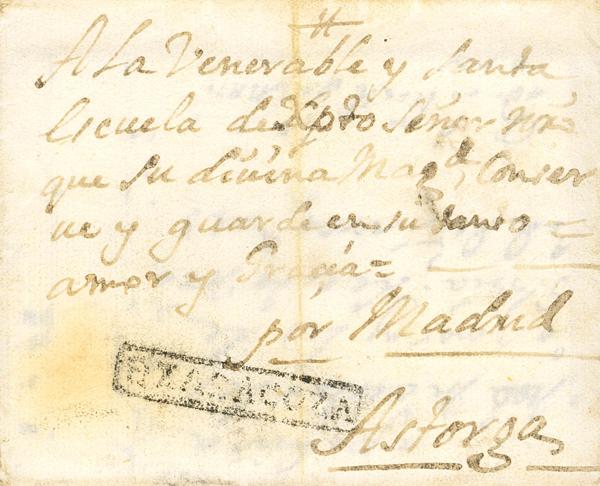 A La Venerable y Santa
Escuela de Xpto Señor Nrõ
que su divina Mag.d Conser
ve y guarde en su
amor y Gracia =
por Madrid
ZARAGOZA
Astorga